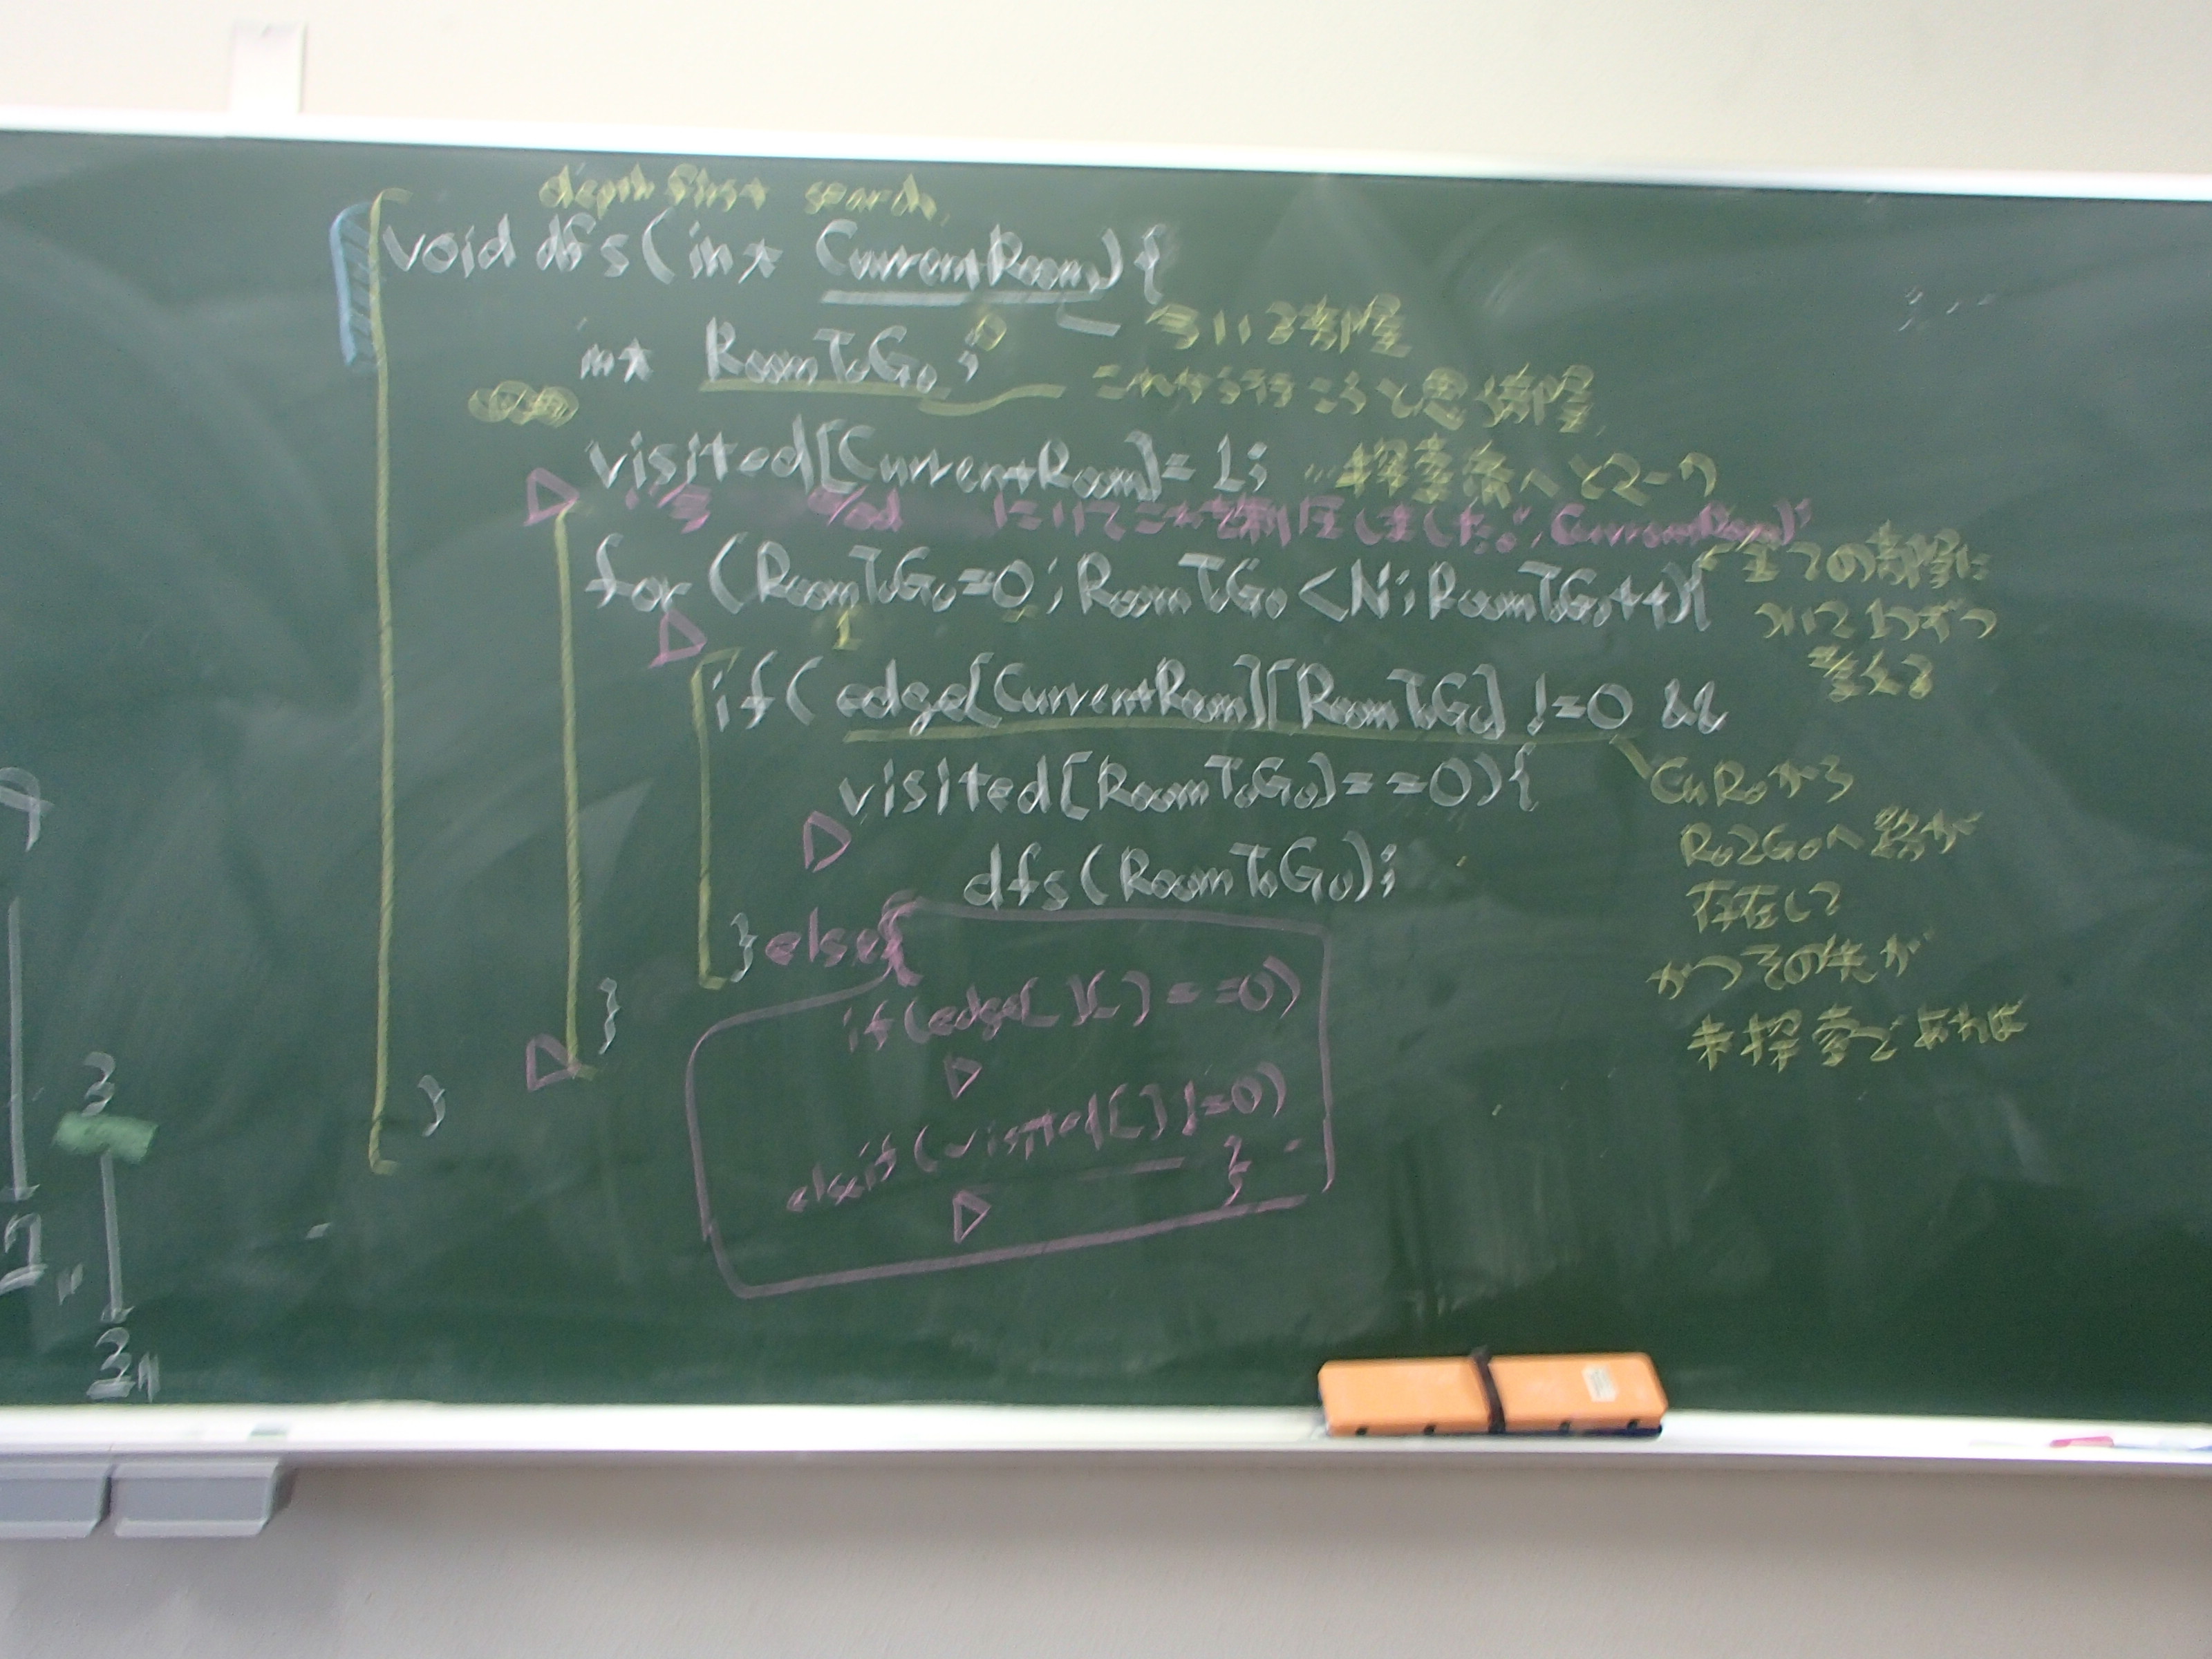 depth first search
void dfs(int CurrentRoom){
今いる部屋
int RoomToGo;
これから行こうと思う部屋
visited[CurrentRoom]=1; …探索済へとマーク
"今 %d にいてこれを制圧しました。", CurrentRoom)
for (RoomToGo=0; RoomToGo<N; RoomToGo++){
1
全ての部屋に
ついて1つずつ
考える
if( edge[CurrentRoom][RoomToGo] !=0 &&
visited[RoomToGo]==0){
CuRoから
Ro2Goへ 路が
存在して
かつその先が
未探索であれば
dfs(RoomToGo);
}else{
if(edge[ ][ ]==0)
else if(visited[ ] !=0)
}
}
}
3
3